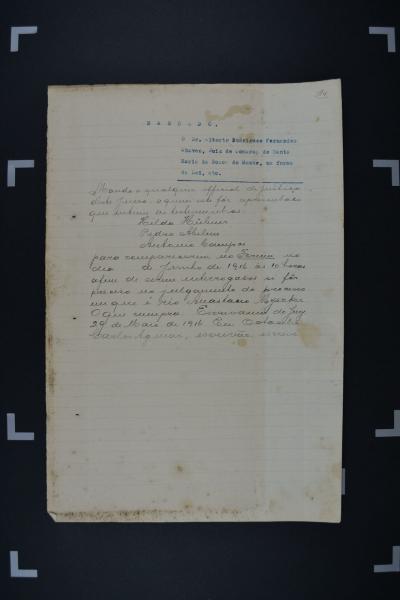 MANDADO.
O Dr. Alberto Rodrigues Fernandes
Chaves, Juiz de Comarca de Santa
Maria da Bocca do Monte, na forma
da Lei, etc.
Mando a qualquer official de justiça
deste Juizo, a quem este fôr apresentado
que intime as testemunhas:
Hilda Hübner
Pedro
Antonio Campos
para comparecerem no Forum no
dia de Junho de 1916 ás 10 horas
afim de serem interrogados si fôr
preciso no julgamento do processo
em que é réo Anastacio
O que cumpra. Escrivania do Jury
29 de Maio de 1916. Eu
Carlos Aguiar, escrivão,